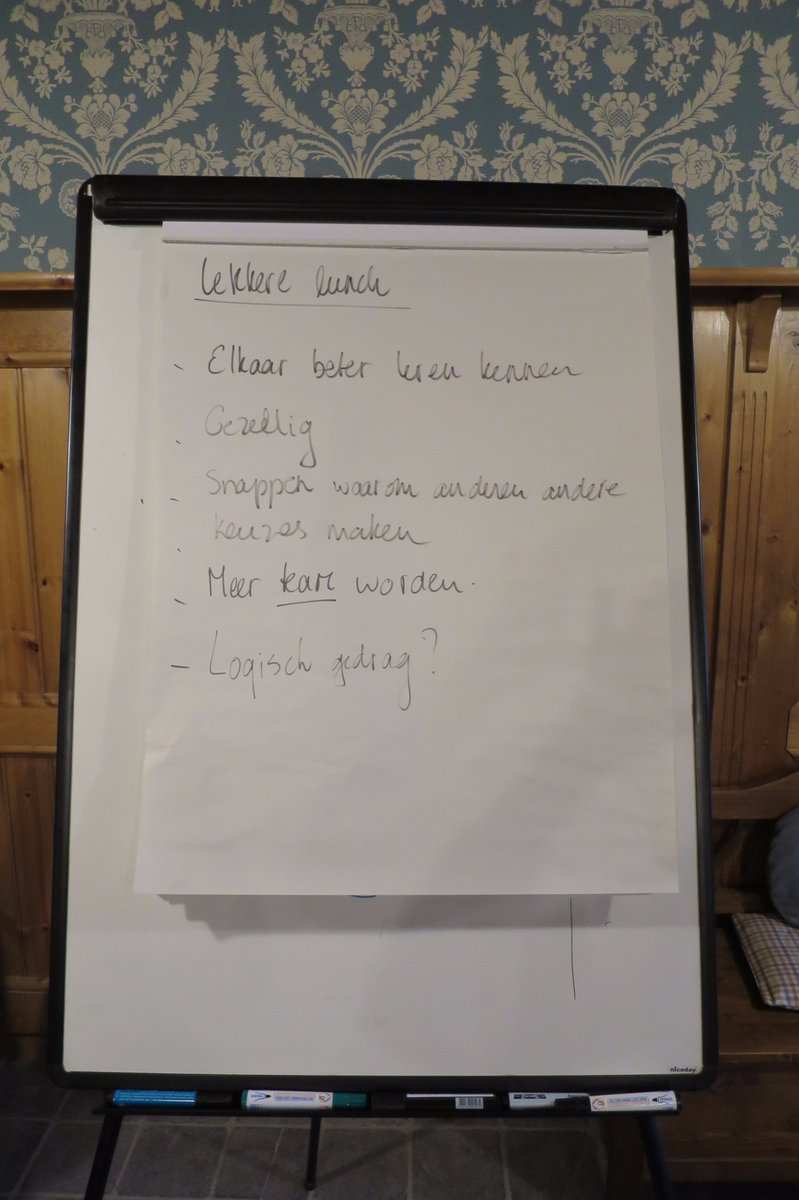 Lekkere lunch
- Elkaar beter leren kennen
- Gezellig
- Snappen waarom anderen andere
- keuzes maken
- Meer team worden.
- Logisch gedrag?
niceday